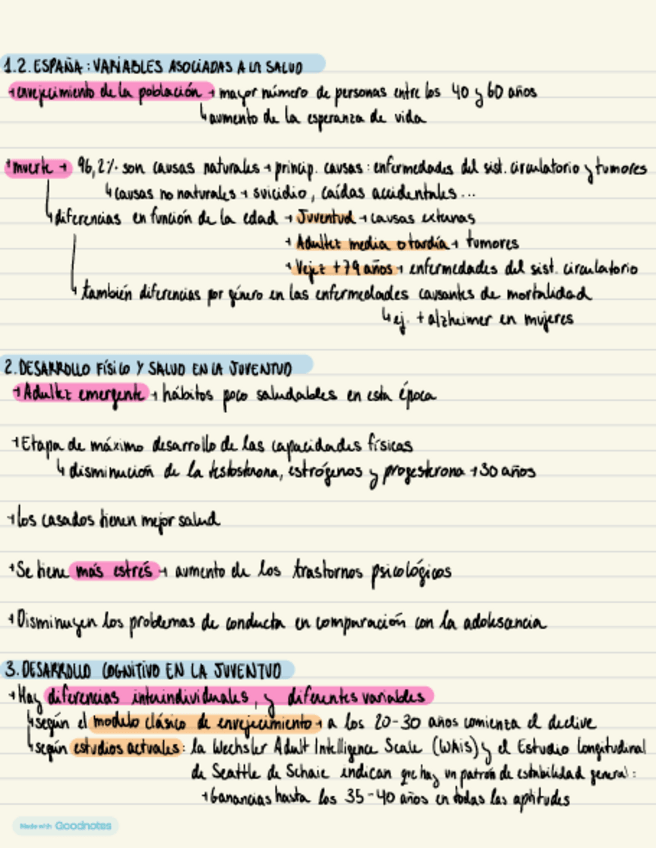 1.2. ESPAÑA: VARIABLES ASOCIADAS A LA SALUD
→ envejecimiento de la población → mayor número de personas entre los 40 y 60 años
↳ aumento de la esperanza de vida
→ muerte → 96,2% son causas naturales → princip. causas: enfermedades del sist. circulatorio y tumores
↳ causas no naturales → suicidio, caídas accidentales...
↳ diferencias en función de la edad → Juventud → causas externas
→ Adultez media o tardía → tumores
→ Vejez +79 años → enfermedades del sist. circulatorio
↳ también diferencias por género en las enfermedades causantes de mortalidad
↳ ej. + alzheimer en mujeres
2. DESARROLLO FÍSICO Y SALUD EN LA JUVENTUD
→ Adultez emergente → hábitos poco saludables en esta época
→ Etapa de máximo desarrollo de las capacidades físicas
↳ disminución de la testosterona, estrógenos y progesterona +30 años
→ los casados tienen mejor salud
→ Se tiene más estrés → aumento de los trastornos psicológicos
→ Disminuyen los problemas de conducta en comparación con la adolescencia
3. DESARROLLO COGNITIVO EN LA JUVENTUD
→ Hay diferencias interindividuales, y diferentes variables
↳ según el modelo clásico de envejecimiento → a los 20-30 años comienza el declive
↳ según estudios actuales: la Wechsler Adult Intelligence Scale (WAIS) y el Estudio Longitudinal
de Seattle de Schaie indican que hay un patrón de estabilidad general:
→ Ganancias hasta los 35-40 años en todas las aptitudes
Made with Goodnotes